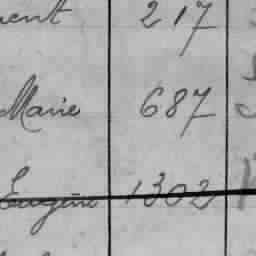 ment 217
Marie 687
Eugène 1302